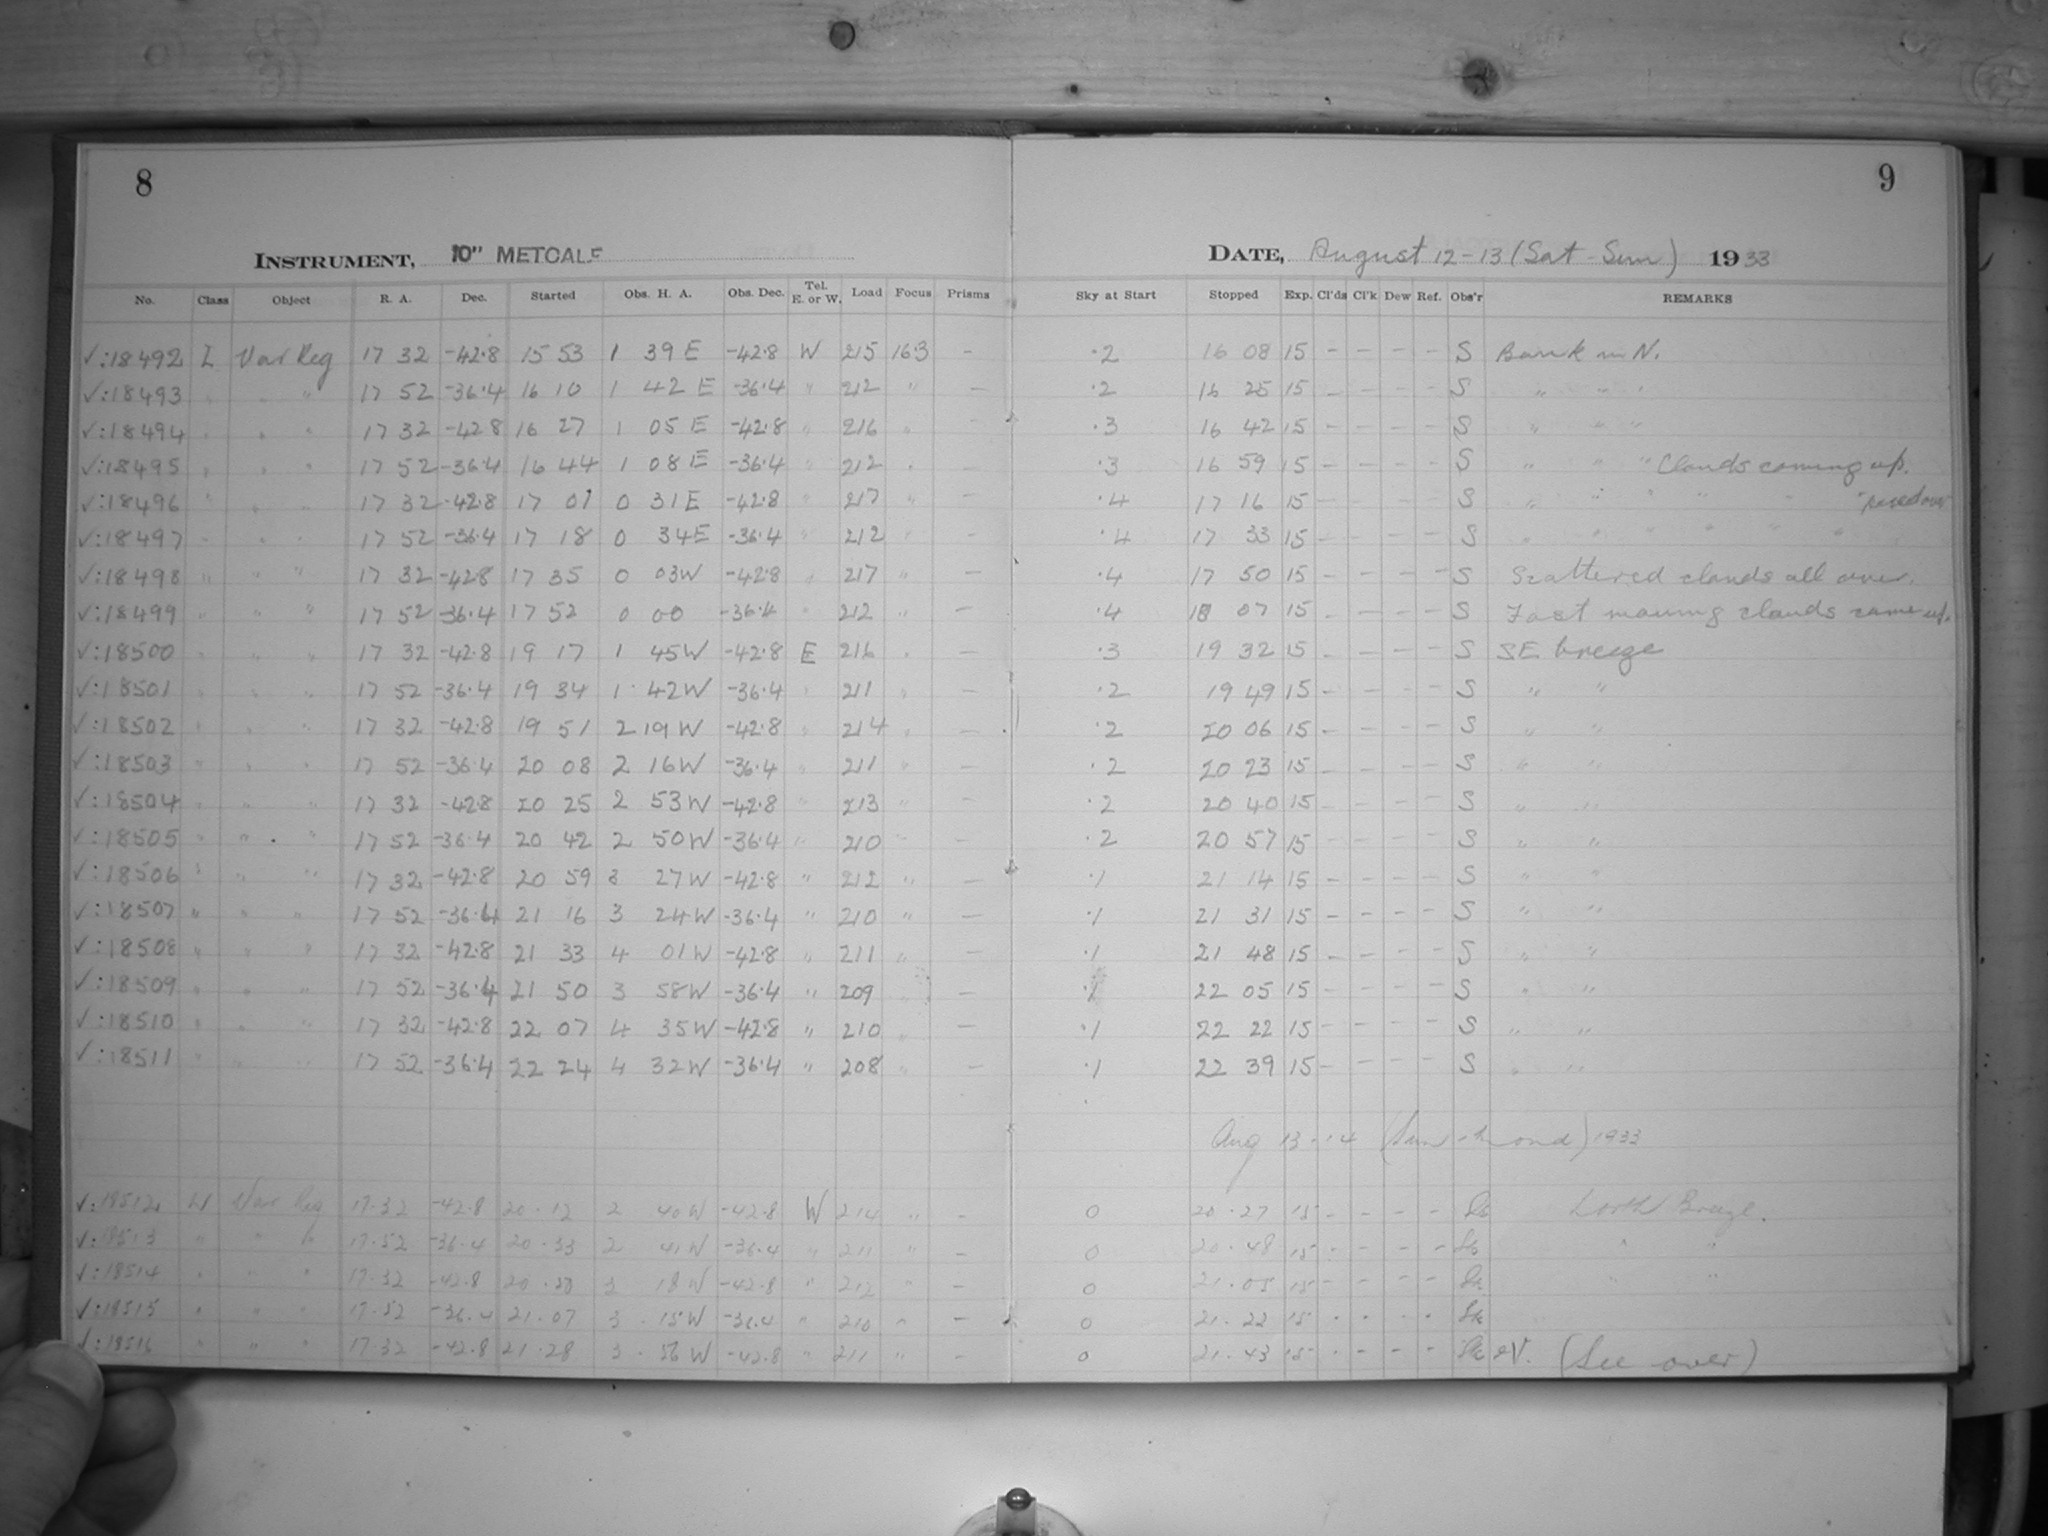 8 9
INSTRUMENT, 10" METCALF DATE, August 12-13 (Sat-Sun) 1933
No. Class Object R. A. Dec. Started Obs. H. A. Obs. Dec. Tel. E. or W. Load Focus Prisms Sky at Start Stopped Exp. Cl'ds Cl'k Dew Ref. Obs'r REMARKS
✓:18492 L Var Reg 17 32 -42.8 15 53 1 39 E -42.8 W 215 163 - .2 16 08 15 - - - - S Bank in N.
✓:18493 " " " 17 52 -36.4 16 10 1 42 E -36.4 " 212 " - .2 16 25 15 - - - - S " " "
✓:18494 " " " 17 32 -42.8 16 27 1 05 E -42.8 " 216 " - .3 16 42 15 - - - - S " " "
✓:18495 " " " 17 52 -36.4 16 44 1 08 E -36.4 " 212 " - .3 16 59 15 - - - - S " " " Clouds coming up.
✓:18496 " " " 17 32 -42.8 17 01 0 31 E -42.8 " 217 " - .4 17 16 15 - - - - S " " " " " "
✓:18497 " " " 17 52 -36.4 17 18 0 34 E -36.4 " 212 " - .4 17 33 15 - - - - S " " " " " "
✓:18498 " " " 17 32 -42.8 17 35 0 03 W -42.8 " 217 " - .4 17 50 15 - - - - S Scattered clouds all over.
✓:18499 " " " 17 52 -36.4 17 52 0 00 -36.4 " 212 " - .4 18 07 15 - - - - S Fast moving clouds came up.
✓:18500 " " " 17 32 -42.8 19 17 1 45 W -42.8 E 216 " - .3 19 32 15 - - - - S SE breeze
✓:18501 " " " 17 52 -36.4 19 34 1 42 W -36.4 " 211 " - .2 19 49 15 - - - - S " "
✓:18502 " " " 17 32 -42.8 19 51 2 19 W -42.8 " 214 " - .2 20 06 15 - - - - S " "
✓:18503 " " " 17 52 -36.4 20 08 2 16 W -36.4 " 211 " - .2 20 23 15 - - - - S " "
✓:18504 " " " 17 32 -42.8 20 25 2 53 W -42.8 " 213 " - .2 20 40 15 - - - - S " "
✓:18505 " " " 17 52 -36.4 20 42 2 50 W -36.4 " 210 " - .2 20 57 15 - - - - S " "
✓:18506 " " " 17 32 -42.8 20 59 3 27 W -42.8 " 212 " - .1 21 14 15 - - - - S " "
✓:18507 " " " 17 52 -36.4 21 16 3 24 W -36.4 " 210 " - .1 21 31 15 - - - - S " "
✓:18508 " " " 17 32 -42.8 21 33 4 01 W -42.8 " 211 " - .1 21 48 15 - - - - S " "
✓:18509 " " " 17 52 -36.4 21 50 3 58 W -36.4 " 209 " - .1 22 05 15 - - - - S " "
✓:18510 " " " 17 32 -42.8 22 07 4 35 W -42.8 " 210 " - .1 22 22 15 - - - - S " "
✓:18511 " " " 17 52 -36.4 22 24 4 32 W -36.4 " 208 " - .1 22 39 15 - - - - S " "
Aug 13-14 (Sun-mond) 1933
✓:18512 Var Reg 17.32 -42.8 20.12 2 40 W -42.8 W 214 " - 0 20.27 15 - - - - North Breeze.
✓:18513 " " " 17.52 -36.4 20.33 2 41 W -36.4 " 211 " - 0 20.48 15 - - - - " "
✓:18514 " " " 17.32 -42.8 3 18 W -42.8 " 212 " - 0 21.05 15 - - - - " "
✓:18515 " " " 17.52 -36.4 21.07 3 15 W -36.4 " 210 " - 0 21.22 15 - - - -
✓:18516 " " " 17.32 -42.8 21.28 3 56 W -42.8 " 211 " - 0 21.43 15 - - - - (See over)